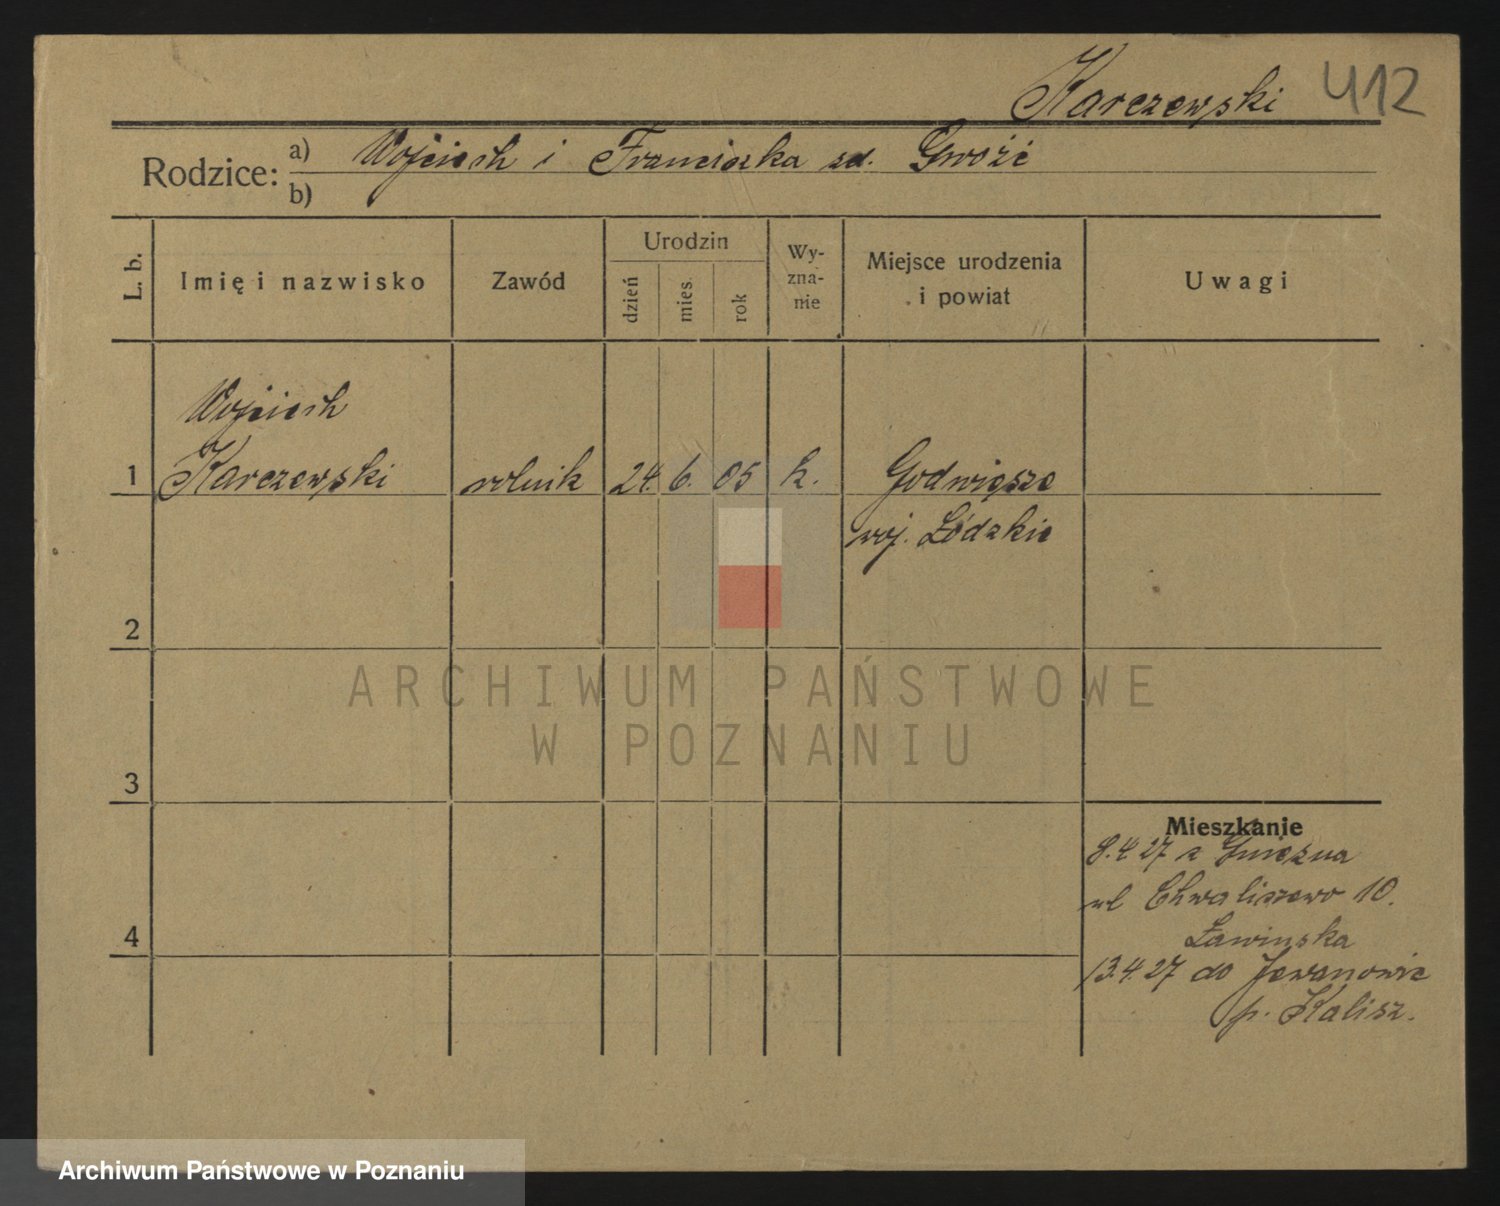 Karczewski 412
Rodzice: a) Wojciech i Franciszka zd. Gwoźć
b)
L. b. Imię i nazwisko Zawód Urodzin dzień mies. rok Wy-zna-nie Miejsce urodzenia i powiat Uwagi
Wojciech
1 Karczewski rolnik 24. 6. 05 k. Godwięsze
woj. Łódzkie
2
ARCHIWUM PAŃSTWOWE
W POZNANIU
3
Mieszkanie
8.4.27 z Gniezna
ul Chwaliszewo 10.
4
Ławinska
13.4.27 do
p. Kalisz.
Archiwum Państwowe w Poznaniu